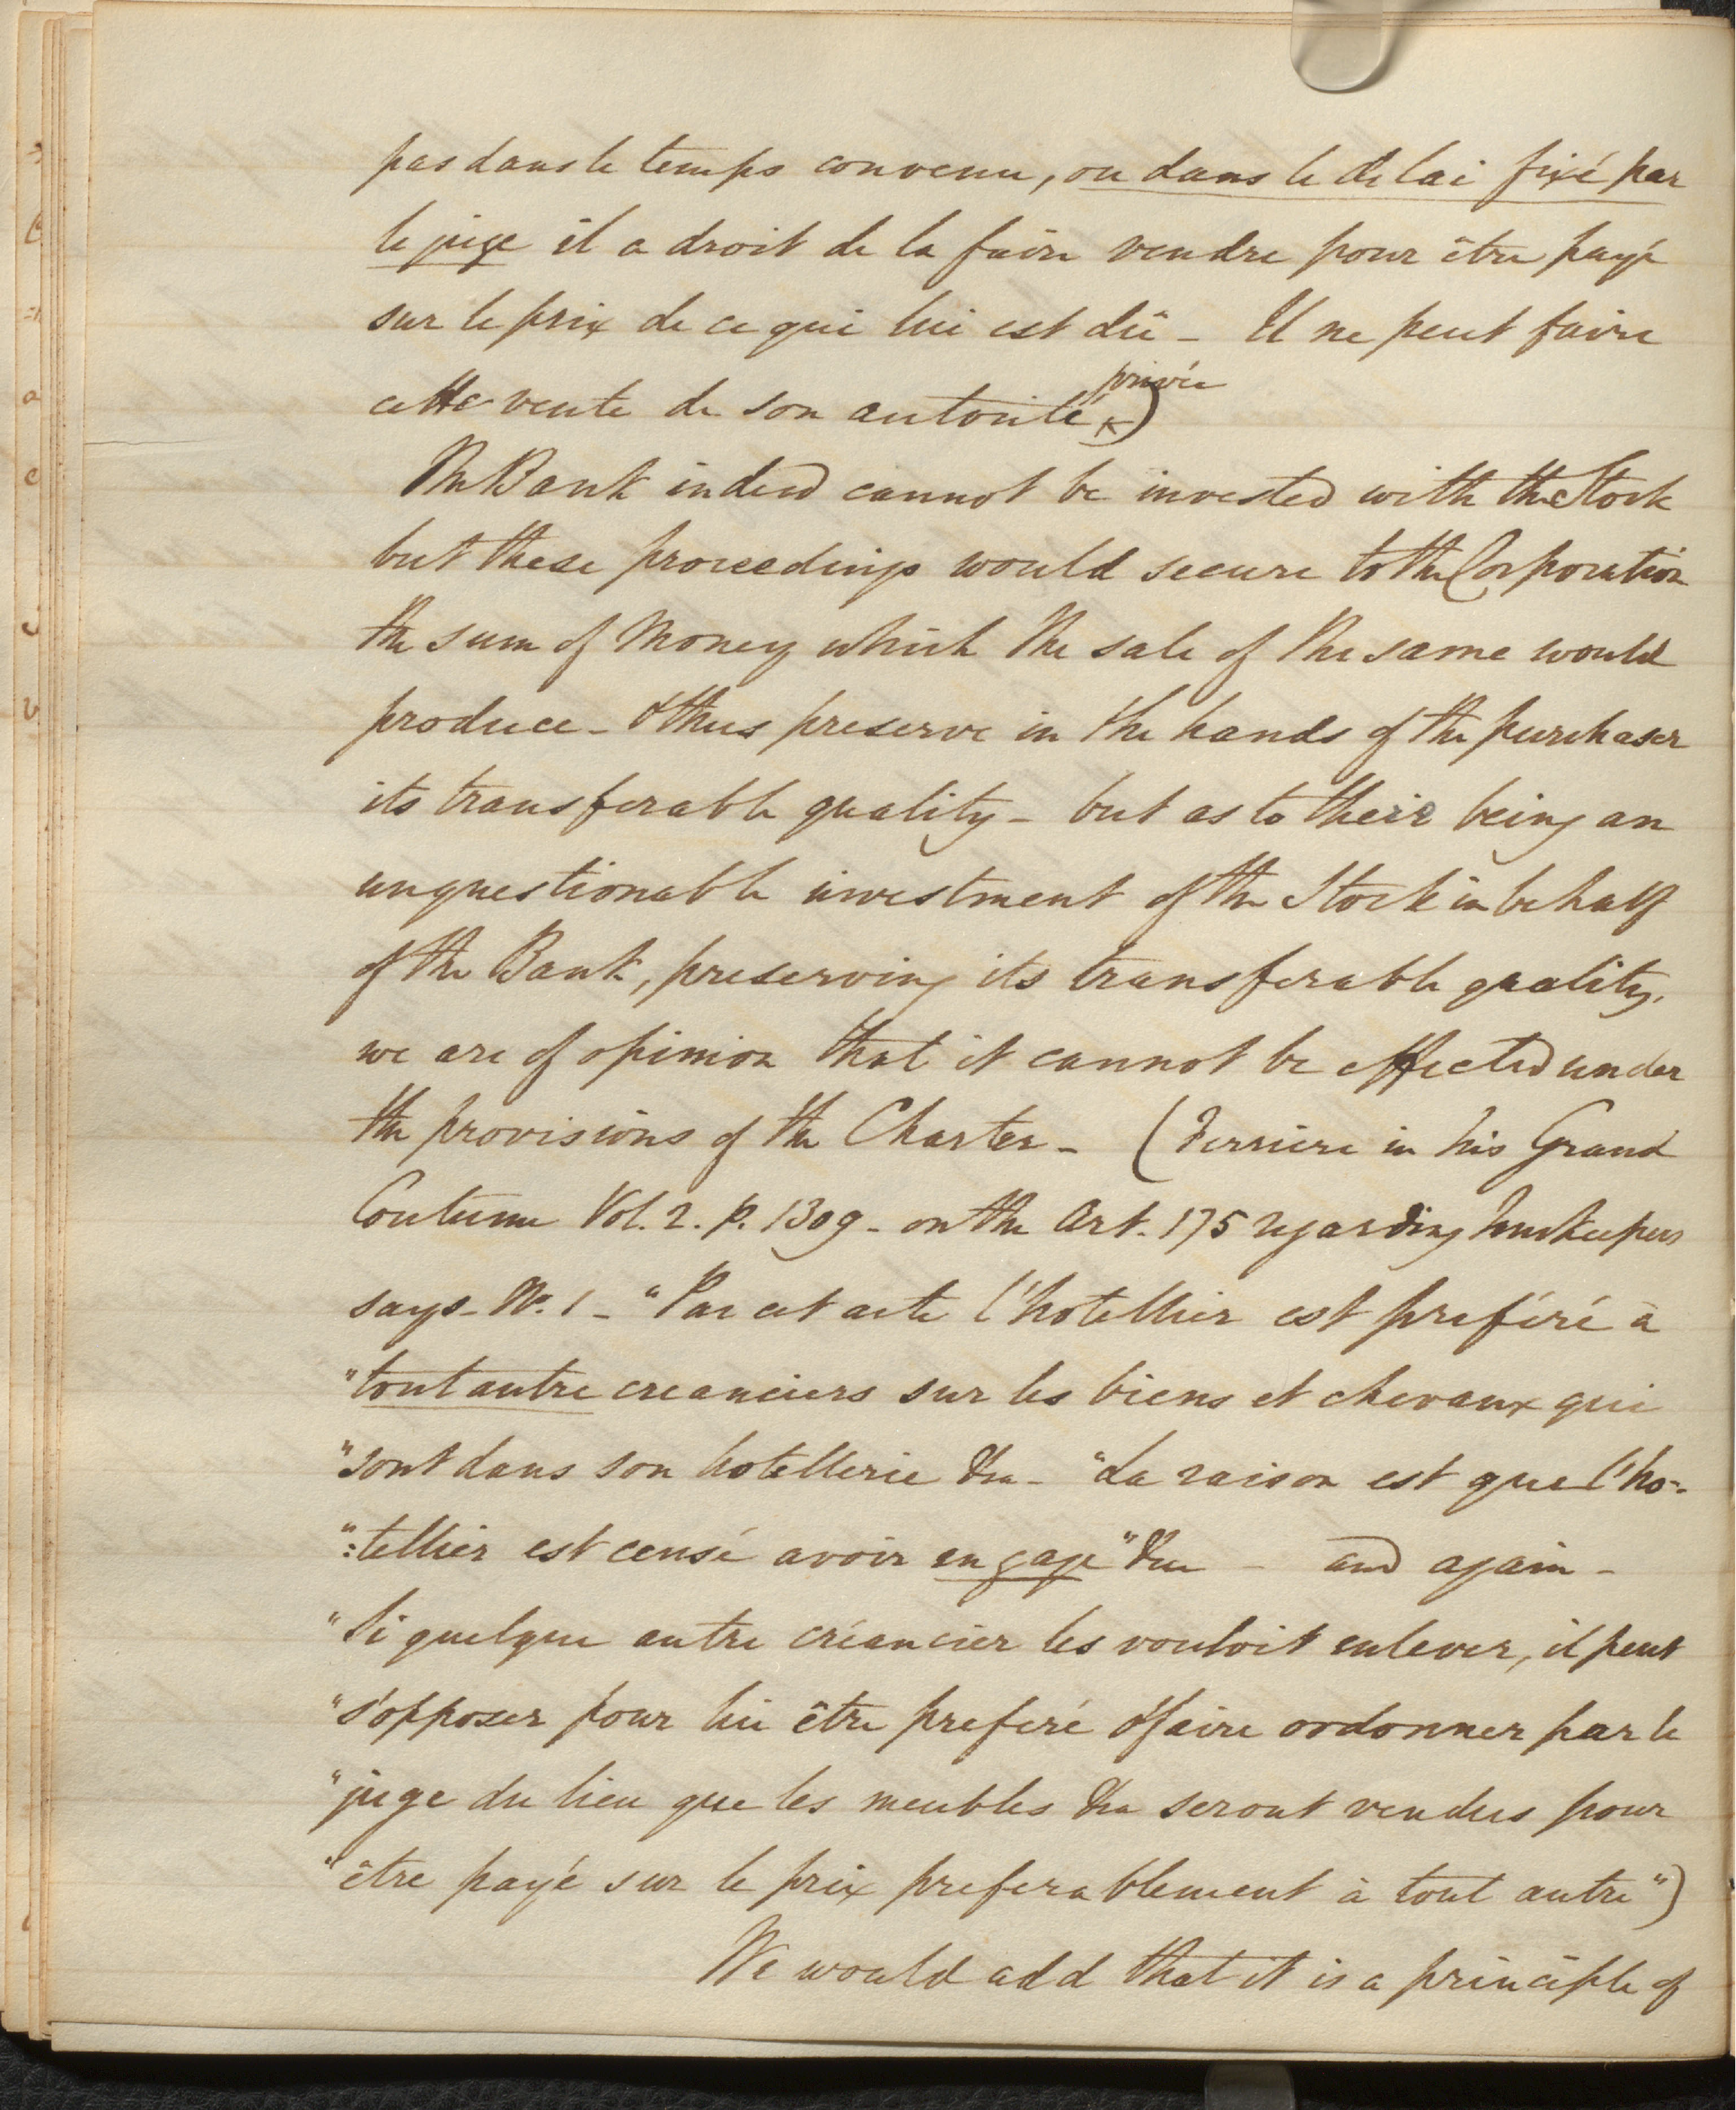 pas dans le temps convenu, ou dans le delai fixé par
le juge il a droit de la faire vendre pour être payé
sur le prix de ce qui lui est dû - Il ne peut faire
privée
cette vente de son autorité )
The Bank indeed cannot be invested with the Stock
but these proceedings would secure to the Corporation
the sum of money which the sale of the same would
produce - & thus preserve in the hands of the purchaser
its transferable quality - but as to their being an
unquestionable investment of the Stock in behalf
of the Bank, preserving its transferable quality,
we are of opinion that it cannot be effected under
the provisions of the Charter - (Ferriere in his Grand
Coutume Vol. 2. p. 1309 - on the Art. 175 regarding Innkeepers
says - No. 1 - "Par cet arte l'hotellier est preféré à
"tout autre creanciers sur les biens et chevaux qui
"sont dans son hotellerie &ca - "La raison est que l'ho-
":tellier est censé avoir en gage" &ca - and again -
"Si quelque autre créancier les vouloit enlever, il peut
"s'opposer pour lui être preferé & faire ordonner par le
"juge du lieu que les meubles &ca seront vendus pour
"être payé sur le prix preferablement à tout autre")
We would add that it is a principle of